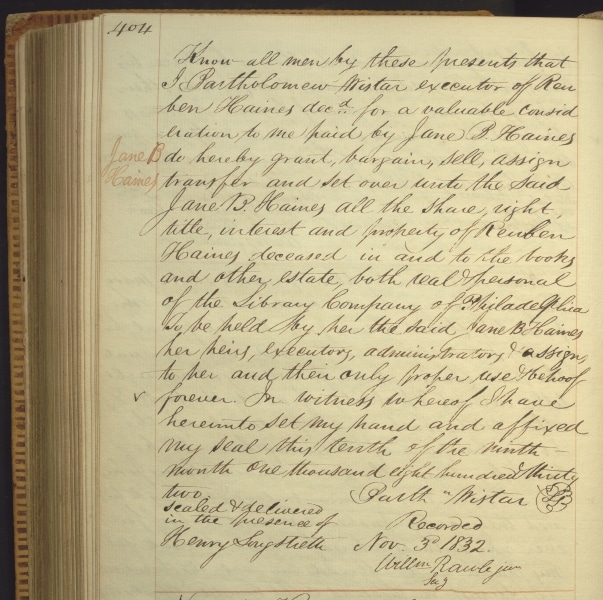 404
Know all men by these presents that
I Bartholomew Wistar executor of Reu
ben Haines decd. for a valuable consid
eration to me paid by Jane B. Haines
Jane B
Haines
do hereby grant, bargain, sell, assign
transfer and set over unto the said
Jane B. Haines all the share, right,
title, interest and property of Reuben
Haines deceased in and to the books
and other estate, both real & personal
of the Library Company of Philadelphia
to be held by her the said Jane B. Haines
her heirs, executors, administrators & assigns
to her and their only proper use & behoof
forever. In witness whereof I have
hereunto set my hand and affixed
my seal this tenth of the ninth
month one thousand eight hundred & thirty
two.
Barth w Wistar
sealed & delivered
in the presence of
Henry Longstreth
Recorded
Nov. 5th 1832.
Willm Rawle jun
Secy